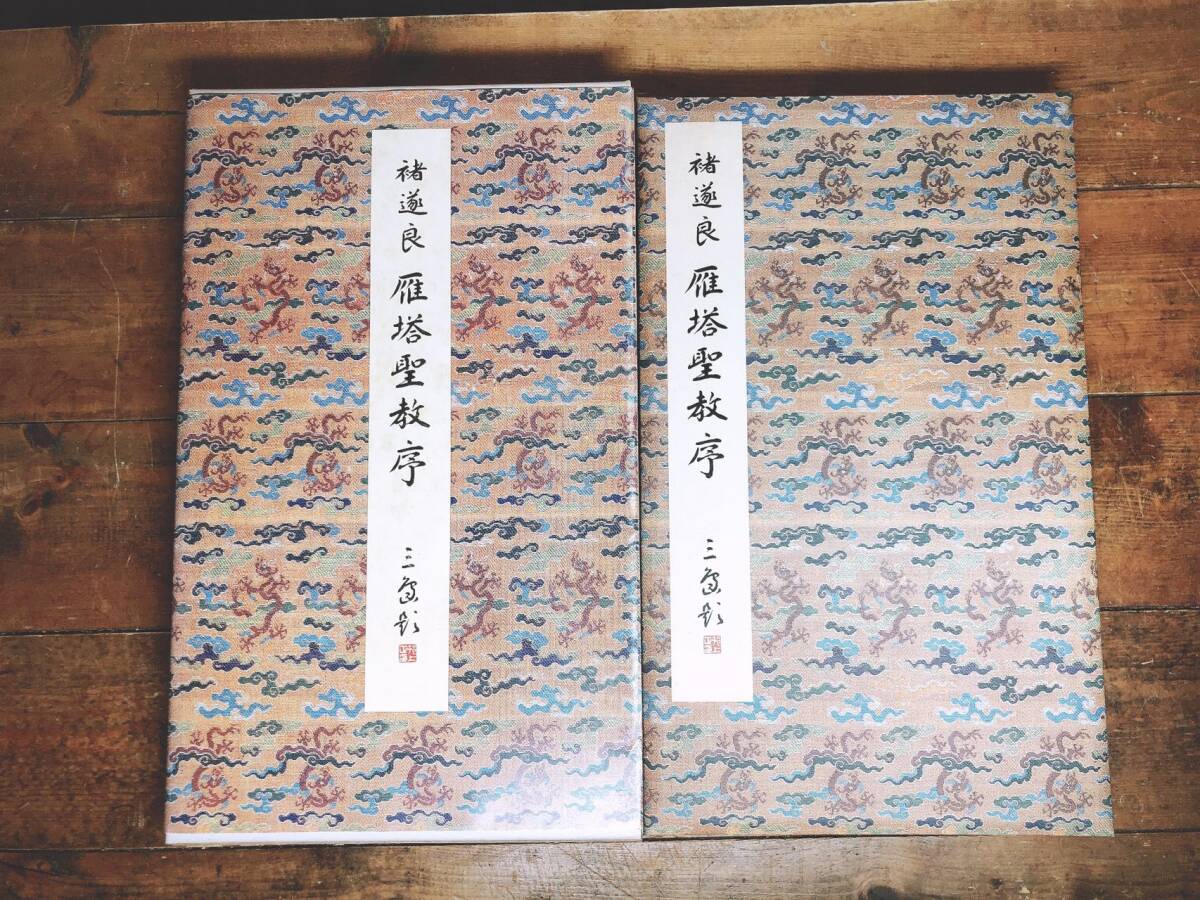 褚遂良 雁塔聖教序
褚遂良 雁塔聖教序